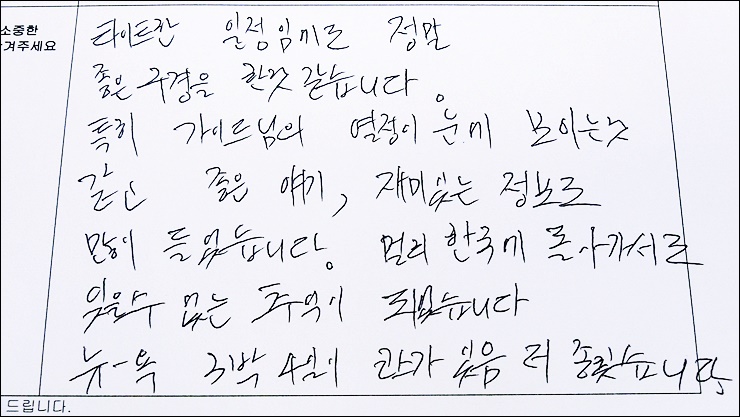 소중한
겨주세요
타이트한 일정임에도 정말
좋은 구경을 한것 같습니다.
특히 가이드님의 열정이 눈에 보이는것
같고 좋은 얘기, 재미있는 정보도
많이 들었습니다. 멀리 한국에 돌아가서도
잊을수 없는 추억이 되겠습니다
뉴-욕 3박 4일이 관가 있음 더 좋겠습니다
드립니다.